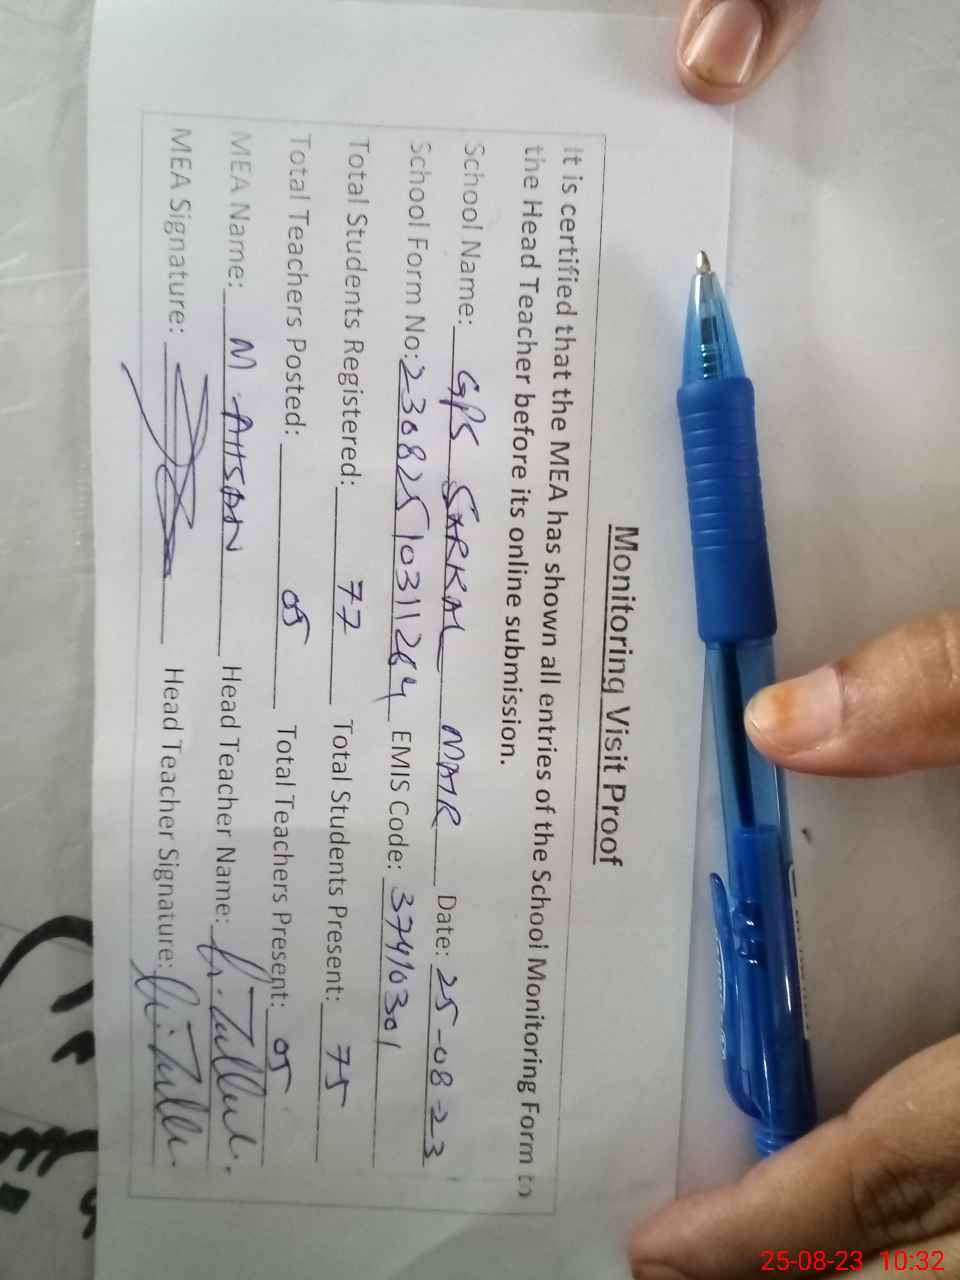 Monitoring Visit Proof
It is certified that the MEA has shown all entries of the School Monitoring Form to
the Head Teacher before its online submission.
School Name: GPS SARKAL MAIR Date: 25-08-23
School Form No: 23082510311264 EMIS Code: 37410301
Total Students Registered: 77 Total Students Present: 75
Total Teachers Posted: 05 Total Teachers Present: 05
MEA Name: M. AHSAN Head Teacher Name:
MEA Signature: Head Teacher Signature:
25-08-23 10:32